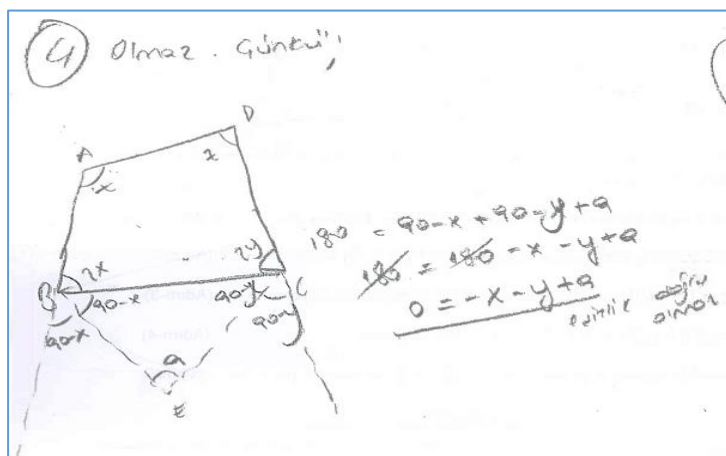 4 Olmaz. Çünkü;
D
A
x
x
2x
2y
B
90-x
90-y
C
90-x
90-y
a
E
180 = 90-x + 90-y + a
180 = 180 - x - y + a
0 = -x - y + a
eşitlik doğru olmaz